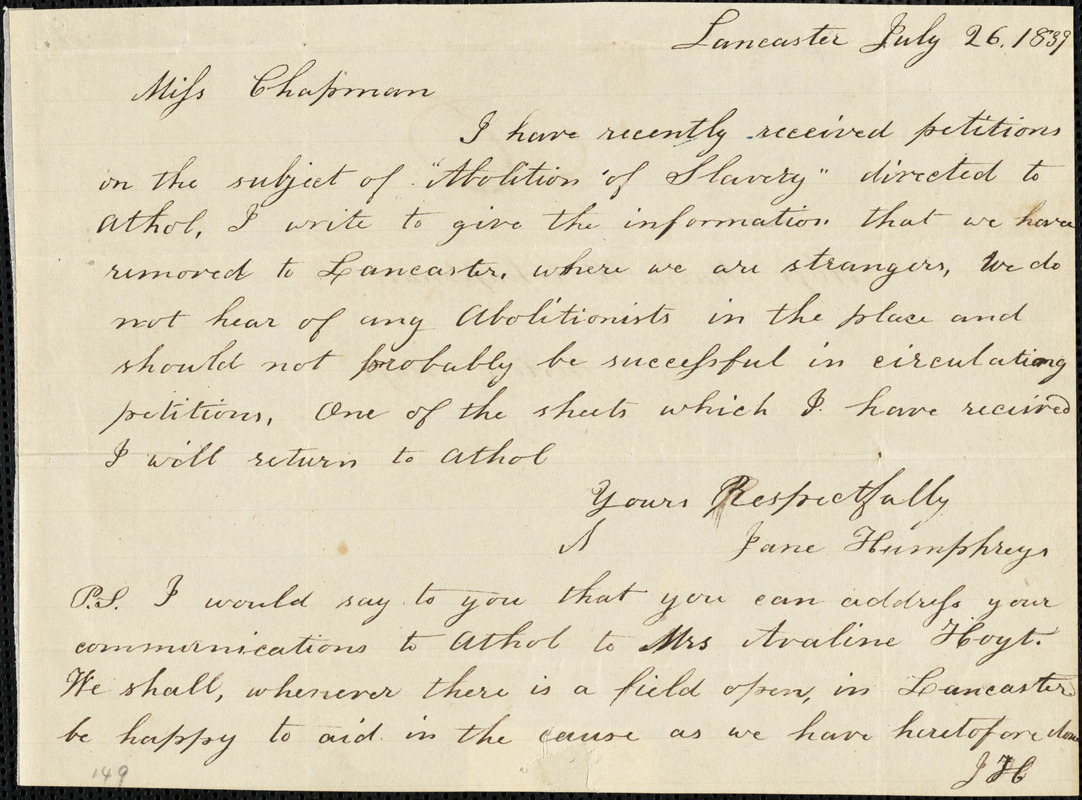 Lancaster July 26. 1839
Miss Chapman
I have recently received petitions
on the subject of "Abolition of Slavery" directed to
Athol, I write to give the information that we have
removed to Lancaster, where we are strangers, We do
not hear of any Abolitionists in the place and
should not probably be successful in circulating
petitions, One of the sheets which I have received
I will return to Athol
Yours Respectfully
Jane Humphreys
P.S. I would say to you that you can address your
communications to Athol to Mrs Avaline Hoyt.
We shall, whenever there is a field open, in Lancaster
be happy to aid in the cause as we have heretofore done
J H
149